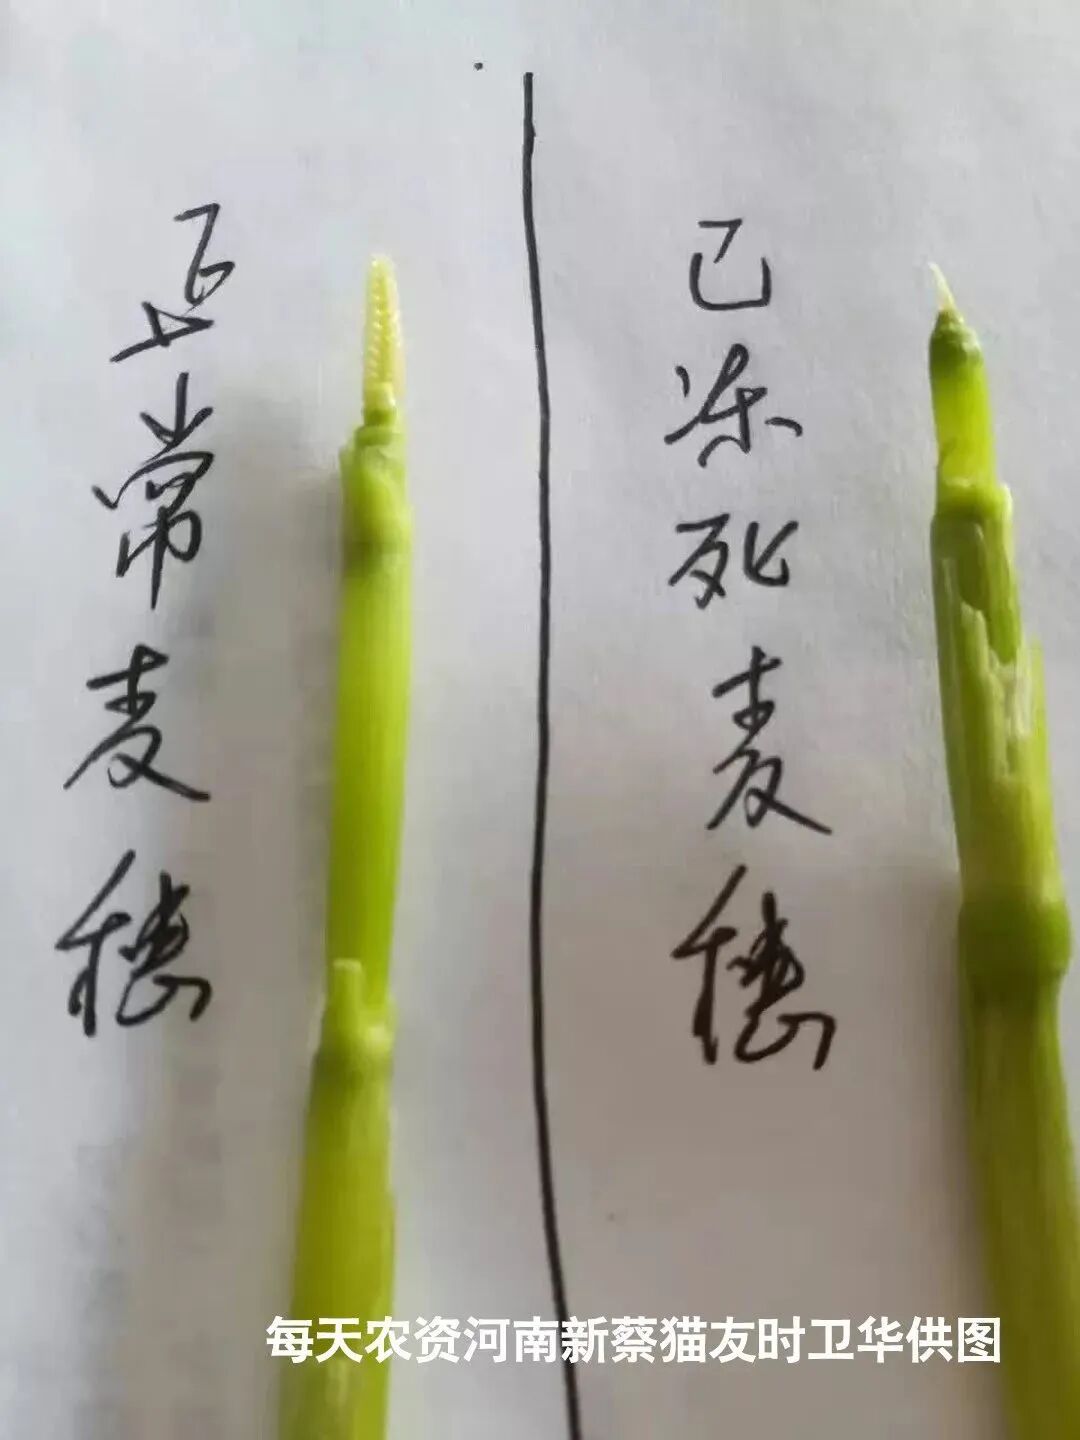 正常麦穗
已冻死麦穗
每天农资河南新蔡猫友时卫华供图